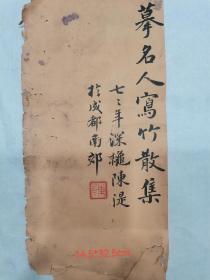 摹名人寫竹散集
七三年深檖陳湜
於成都南郊